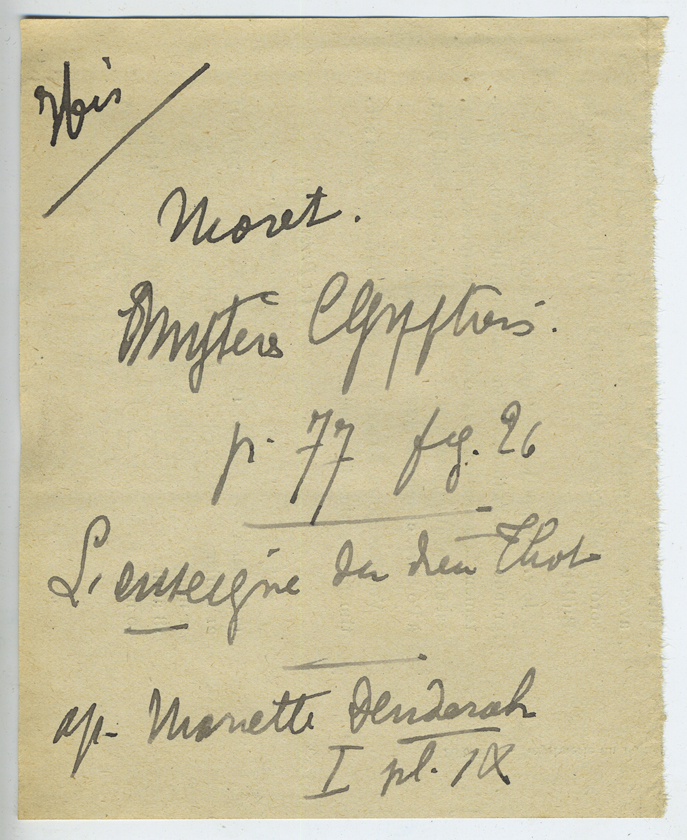 Ibis
Moret.
Mystères Egyptiens.
p. 77 fig. 26
L'enseigne du dieu Thot
ap. Mariette Denderah
I pl. IX